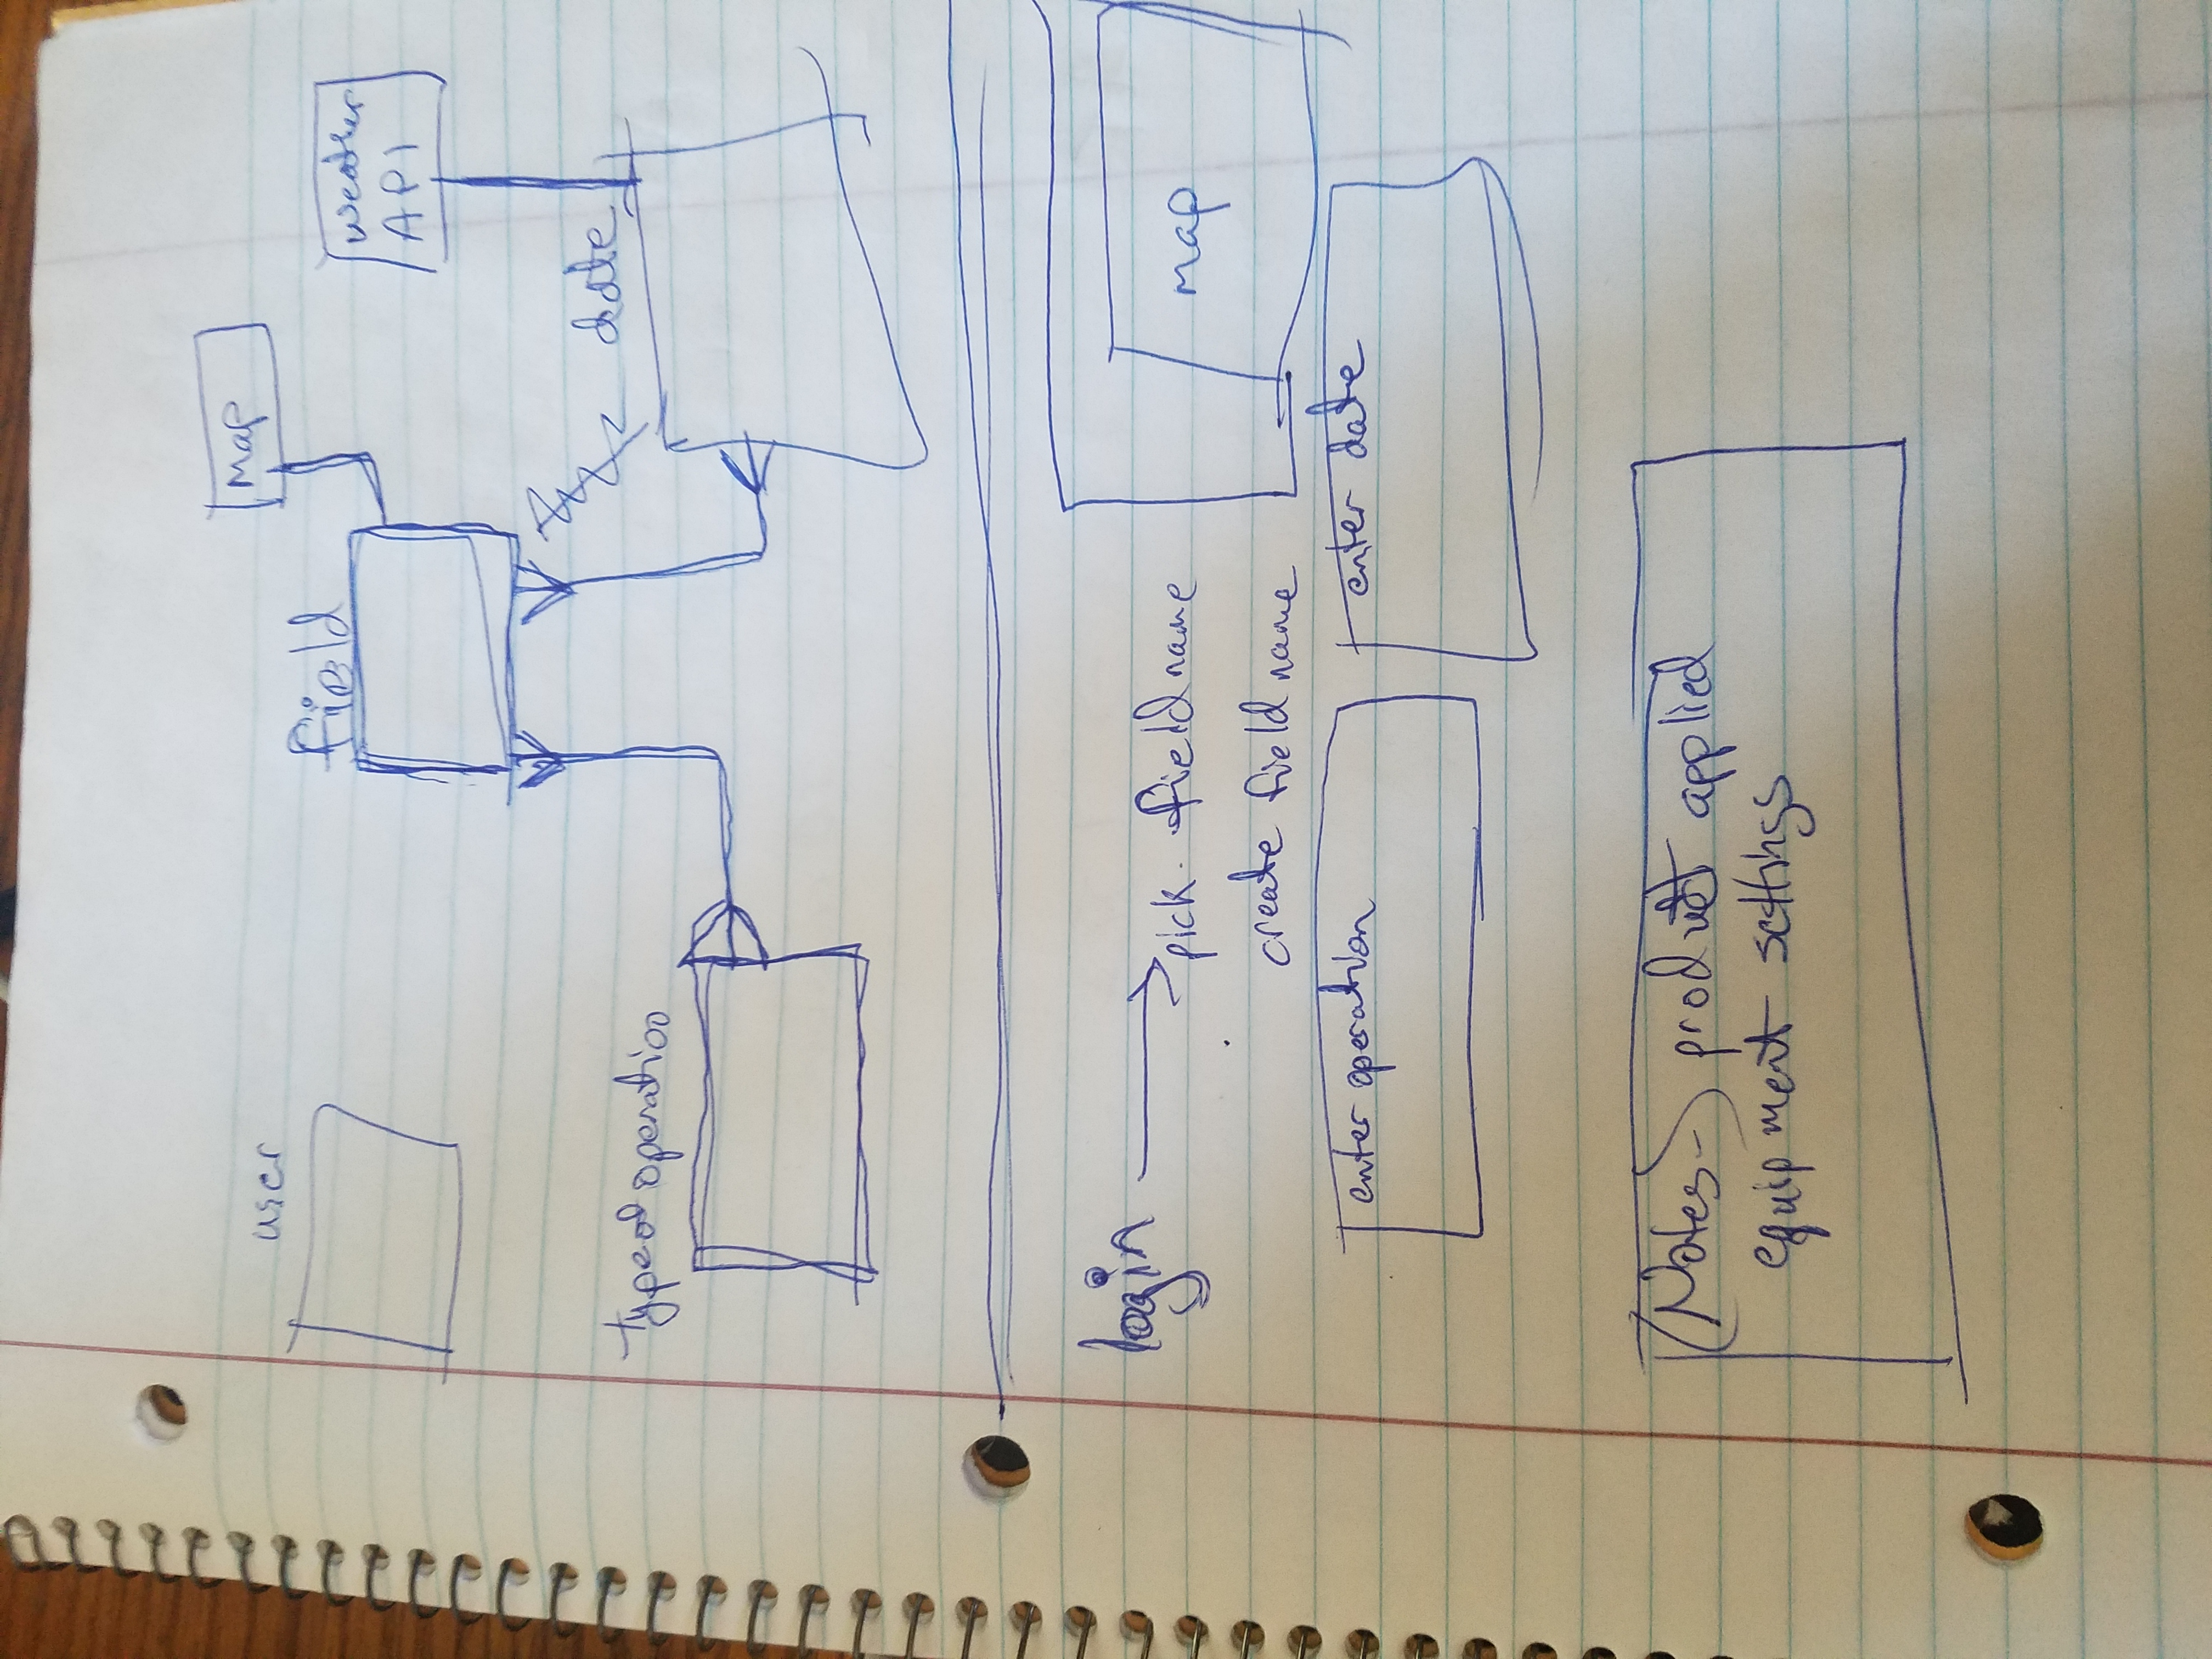 user
Map
field
weather
API
date
type of operation
login
pick field name
map
create field name
enter operation
enter date
(Notes-) product applied
equipment settings